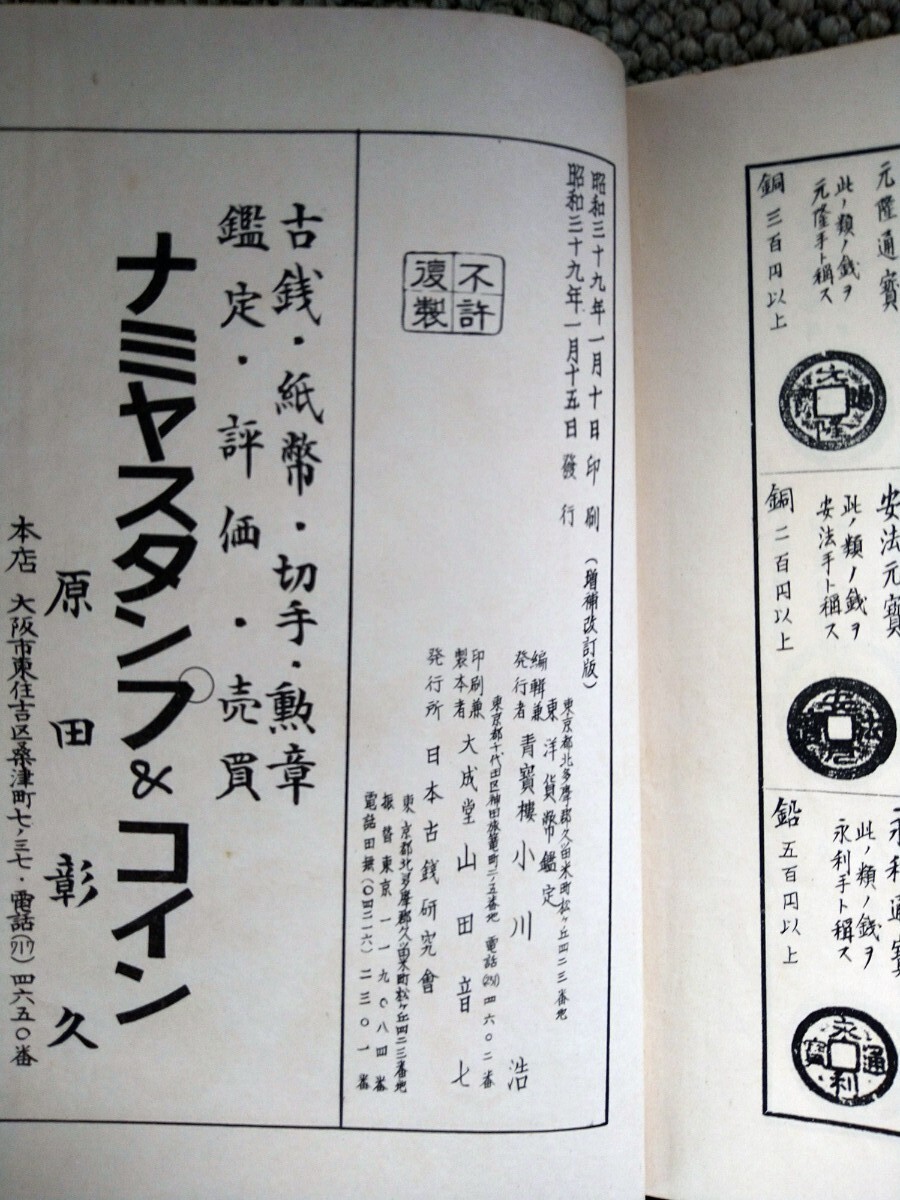 元隆通寳
此ノ類ノ銭ヲ
元隆手ト稱ス
銅 三百円以上
安法元寳
此ノ類ノ銭ヲ
安法手ト稱ス
銅 二百円以上
永利通寳
此ノ類ノ銭ヲ
永利手ト稱ス
鉛 五百円以上
昭和三十九年一月十日印刷
昭和三十九年一月十五日發行
(増補改訂版)
不許
復製
東京都北多摩郡久留米町松ヶ丘四二三番地
東洋貨幣鑑定
編輯兼
発行者 青寳樓 小川浩
東京都千代田区神田旅篭町二ノ五番地 電話(251)四六〇二番
印刷兼
製本者 大成堂 山田音七
発行所 日本古銭研究會
東京都北多摩郡久留米町松ヶ丘四二三番地
振替東京一一九〇八四番
電話田無(〇四二六)二三〇一番
古銭・紙幣・切手・勲章
鑑定・評価・売買
ナミヤスタンプ&コイン
原田彰久
本店 大阪市東住吉区桑津町七ノ三七・電話(717)四六五〇番